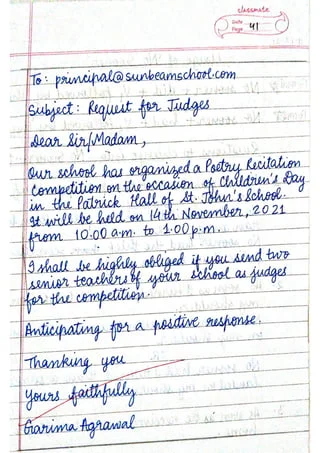 classmate
Date
Page 41
To: principal@sunbeamschool.com
Subject: Request for Judges
Dear Sir/Madam,
Our school has organized a Poetry Recitation
Competition on the occasion of Children's Day
in the Patrick Hall of St. John's School.
It will be held on 14th November, 2021
from 10.00 a.m. to 1.00 p.m.
I shall be highly obliged if you send two
senior teachers of your school as judges
for the competition.
Anticipating for a positive response.
Thanking you
Yours faithfully
Garima Agrawal